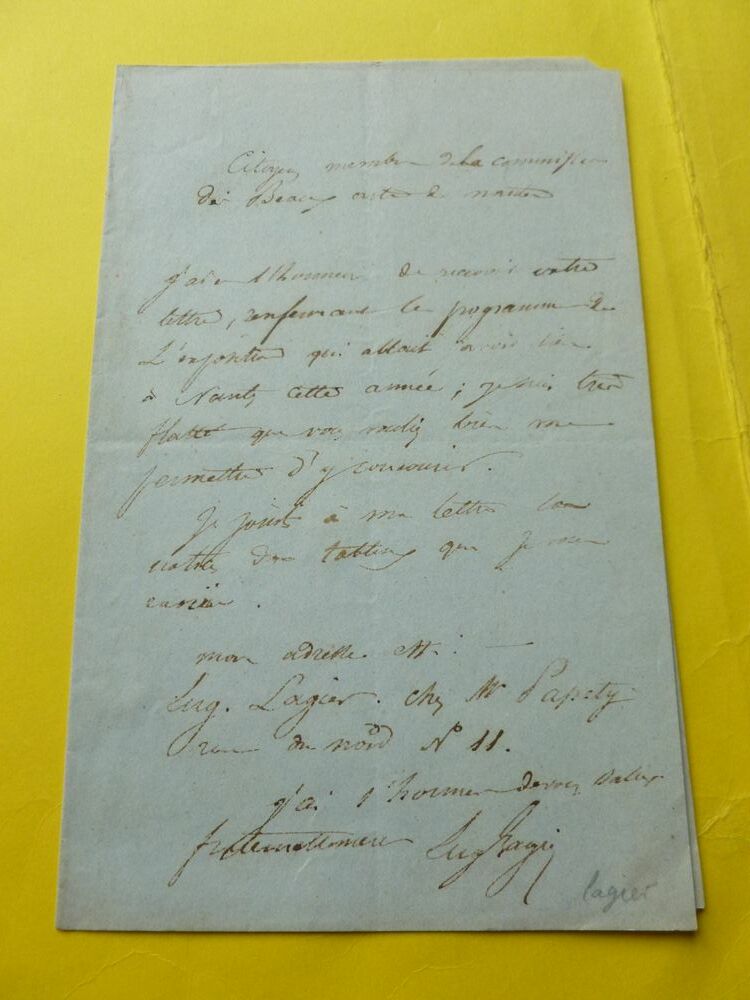 Citoyen membre de la commission
des Beaux arts de nantes
j'ai eu l'honneur de recevoir votre
lettre, renfermant le programme de
L'exposition qui allait avoir lieu
à Nantes cette année; je suis très
flatté que vous vouliez bien me
permettre d'y concourir.
Je joints à ma lettre la
notice des tableaux que je
mon adresse est : —
Eug. Lagier. chez Mr Papety
rue du nord No 11.
j'ai l'honneur de vous saluer
fraternellement Eug Lagier
lagier